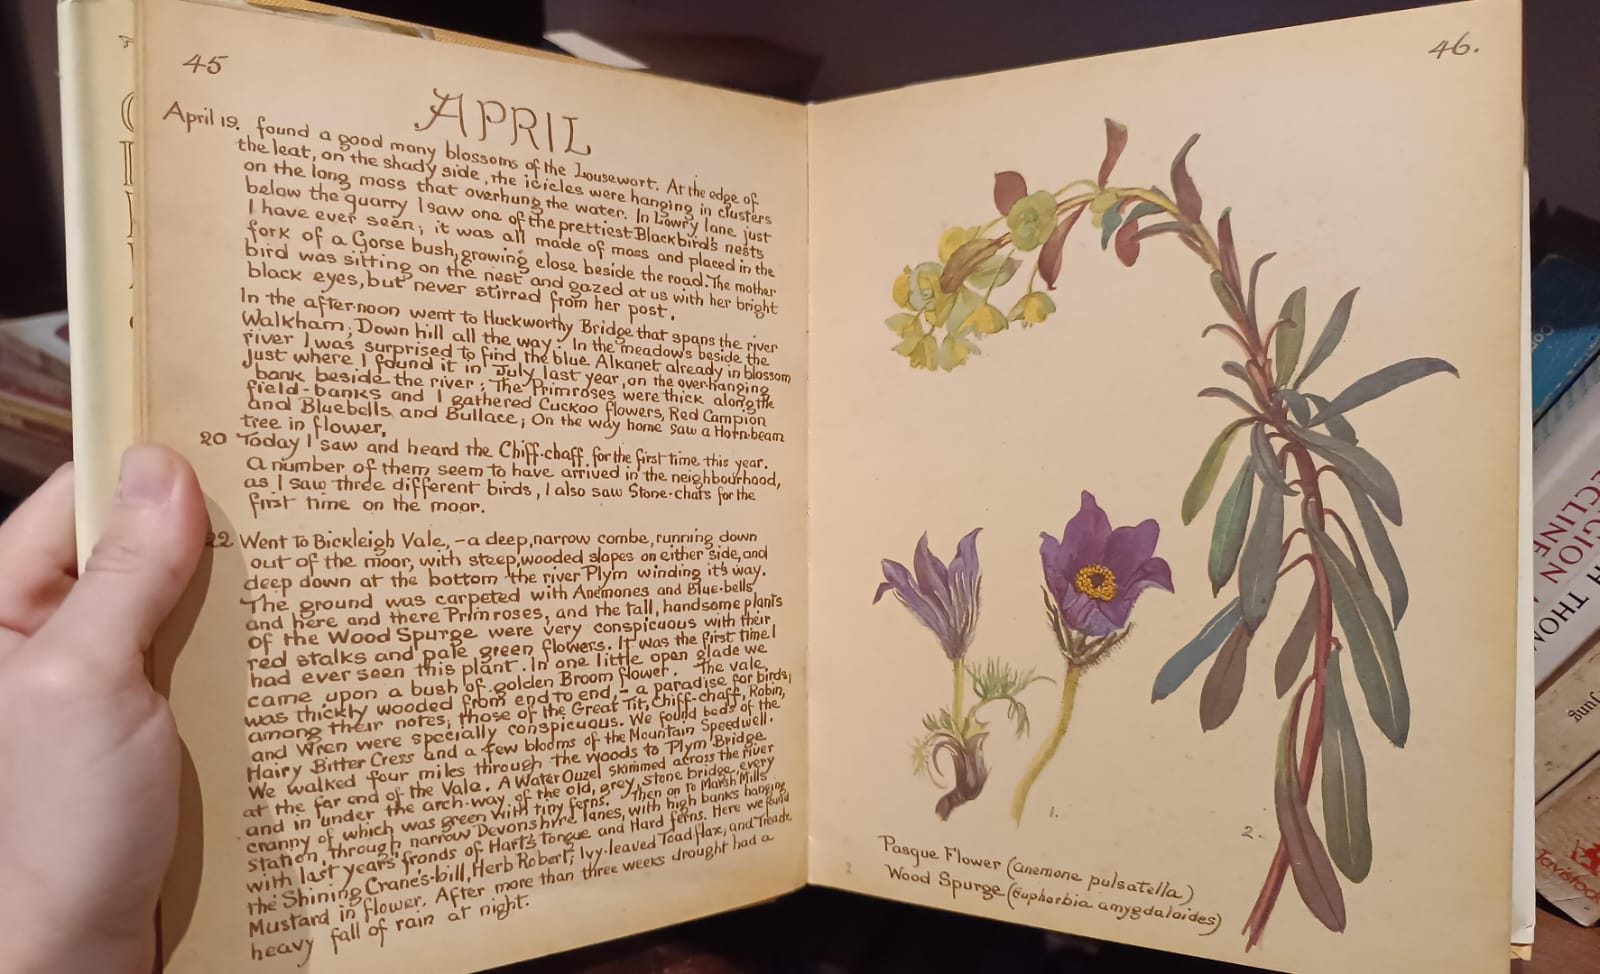 45
APRIL
April 19. found a good many blossoms of the Lousewort. At the edge of
the leat, on the shady side, the icicles were hanging in clusters
on the long moss that overhung the water. In Lowry lane just
below the quarry I saw one of the prettiest Blackbird's nests
I have ever seen; it was all made of moss and placed in the
fork of a Gorse bush, growing close beside the road. The mother
bird was sitting on the nest and gazed at us with her bright
black eyes, but never stirred from her post.
In the after-noon went to Huckworthy Bridge that spans the river
Walkham; Down hill all the way. In the meadows beside the
river I was surprised to find the blue Alkanet already in blossom
just where I found it in July last year, on the over-hanging
bank beside the river; The Primroses were thick along the
field-banks and I gathered Cuckoo flowers, Red Campion
and Bluebells and Bullace; On the way home saw a Hornbeam
tree in flower.
20 Today I saw and heard the Chiff-chaff for the first time this year.
A number of them seem to have arrived in the neighbourhood,
as I saw three different birds, I also saw Stone-chats for the
first time on the moor.
22 Went to Bickleigh Vale, – a deep, narrow combe, running down
out of the moor, with steep, wooded slopes on either side, and
deep down at the bottom the river Plym winding it's way.
The ground was carpeted with Anemones and Blue-bells,
and here and there Primroses, and the tall, handsome plants
of the Wood Spurge were very conspicuous with their
red stalks and pale green flowers. It was the first time I
had ever seen this plant. In one little open glade we
came upon a bush of golden Broom flower. The vale
was thickly wooded from end to end, – a paradise for birds,
among their notes, those of the Great Tit, Chiff-chaff, Robin,
and Wren were specially conspicuous. We found beds of the
Hairy Bitter Cress and a few blooms of the Mountain Speedwell.
We walked four miles through the woods to Plym Bridge
at the far end of the Vale. A Water Ouzel skimmed across the river
and in under the arch-way of the old, grey, stone bridge, every
cranny of which was green with tiny ferns. Then on to Marsh Mills
station, through narrow Devonshire lanes, with high banks hanging
with last years' fronds of Hart's Tongue and Hard ferns. Here we found
the Shining Crane's-bill, Herb Robert, Ivy-leaved Toadflax, and Treacle
Mustard in flower. After more than three weeks drought had a
heavy fall of rain at night.
46.
1.
2.
Pasque Flower (anemone pulsatella)
Wood Spurge (Euphorbia amygdaloides)
THOM
Jung
Tavistock